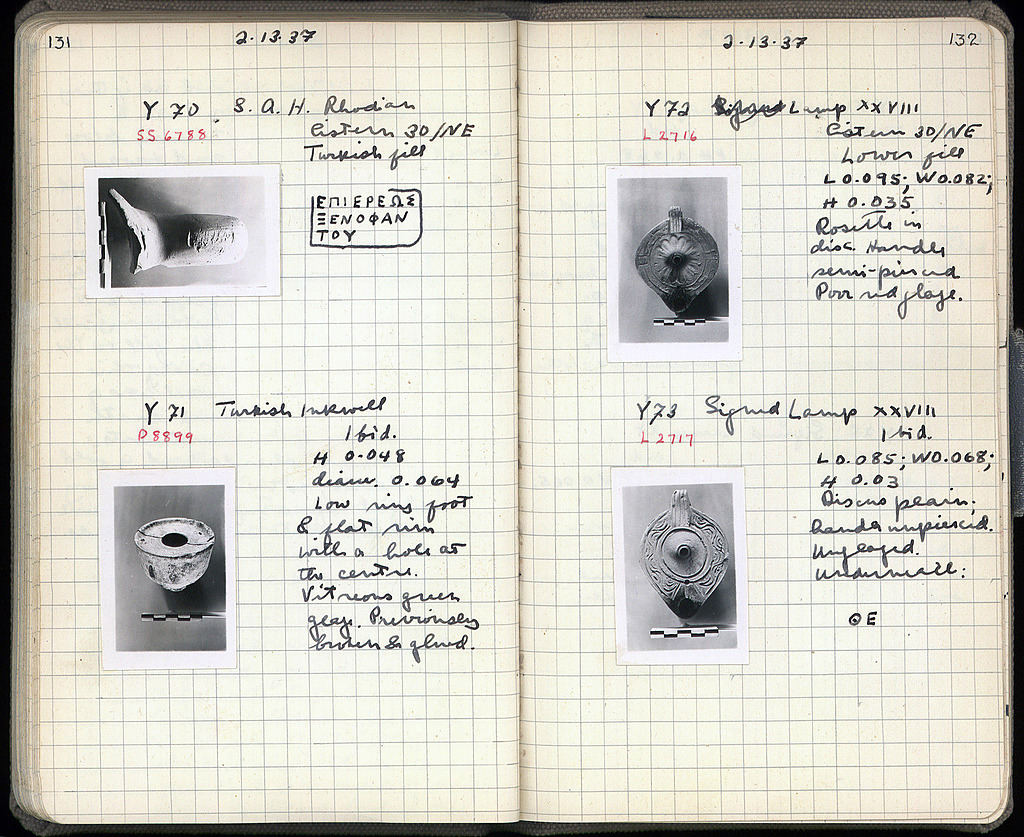 131
2·13·37
Y 70 S. A. H. Rhodian
SS 6788
Cistern 30/NE
Turkish fill
ΕΠΙΕΡΕΩΣ
ΞΕΝΟΦΑΝ
ΤΟΥ
Y 71 Turkish Inkwell
D 8899
Ibid.
H 0.048
diam. 0.064
Low ring foot
& flat rim
with a hole at
the centre.
Vitreous green
glaze. Previously
broken & glued.
132
2·13·37
Y 72 Signed Lamp XXVIII
L 2716
Cistern 30/NE
Lower fill
L 0.095; W 0.082;
H 0.035
Rosette in
disc. Handle
semi-pierced
Poor red glaze.
Y 73 Signed Lamp XXVIII
L 2717
Ibid.
L 0.085; W 0.068;
H 0.03
Discus plain;
handle unpierced.
Unglazed.
Underneath:
ΘΕ